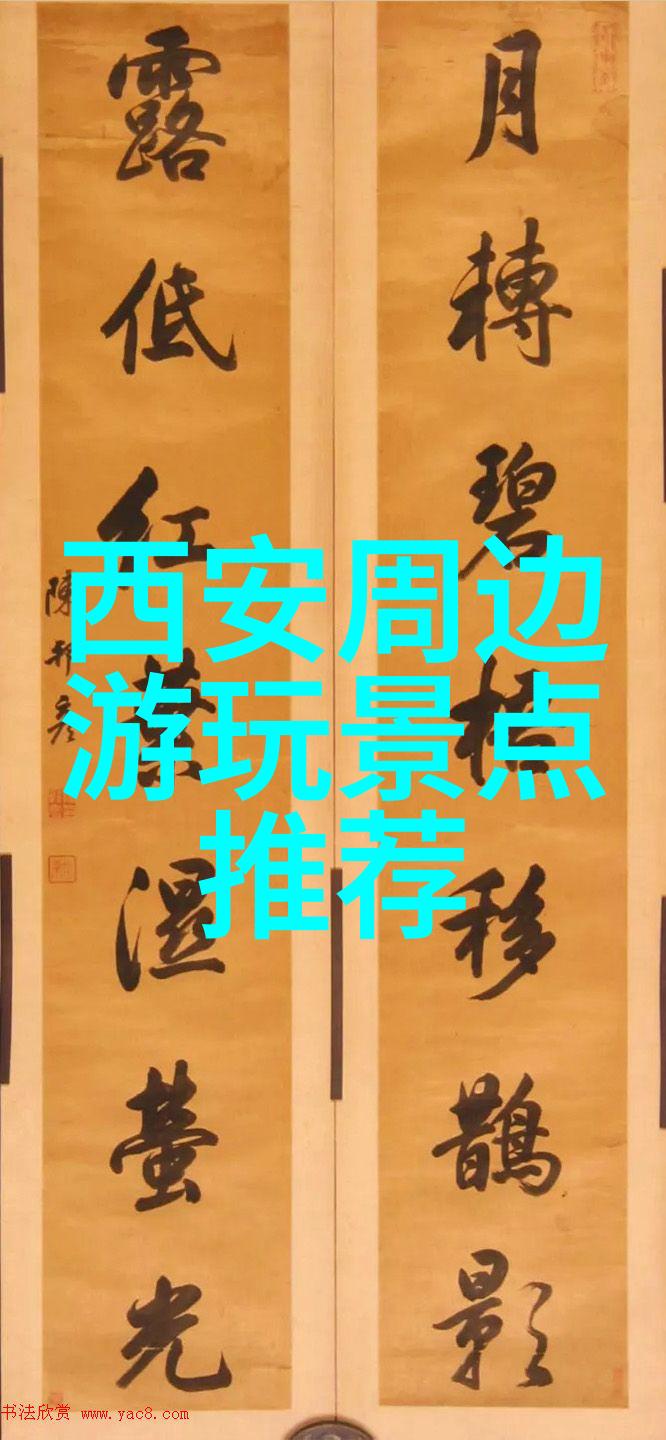 月轉碧梧移鵲影
露低紅葉濕螢光
陳邦彥
西安周边
游玩景点
推荐
书法欣赏 www.yac8.com